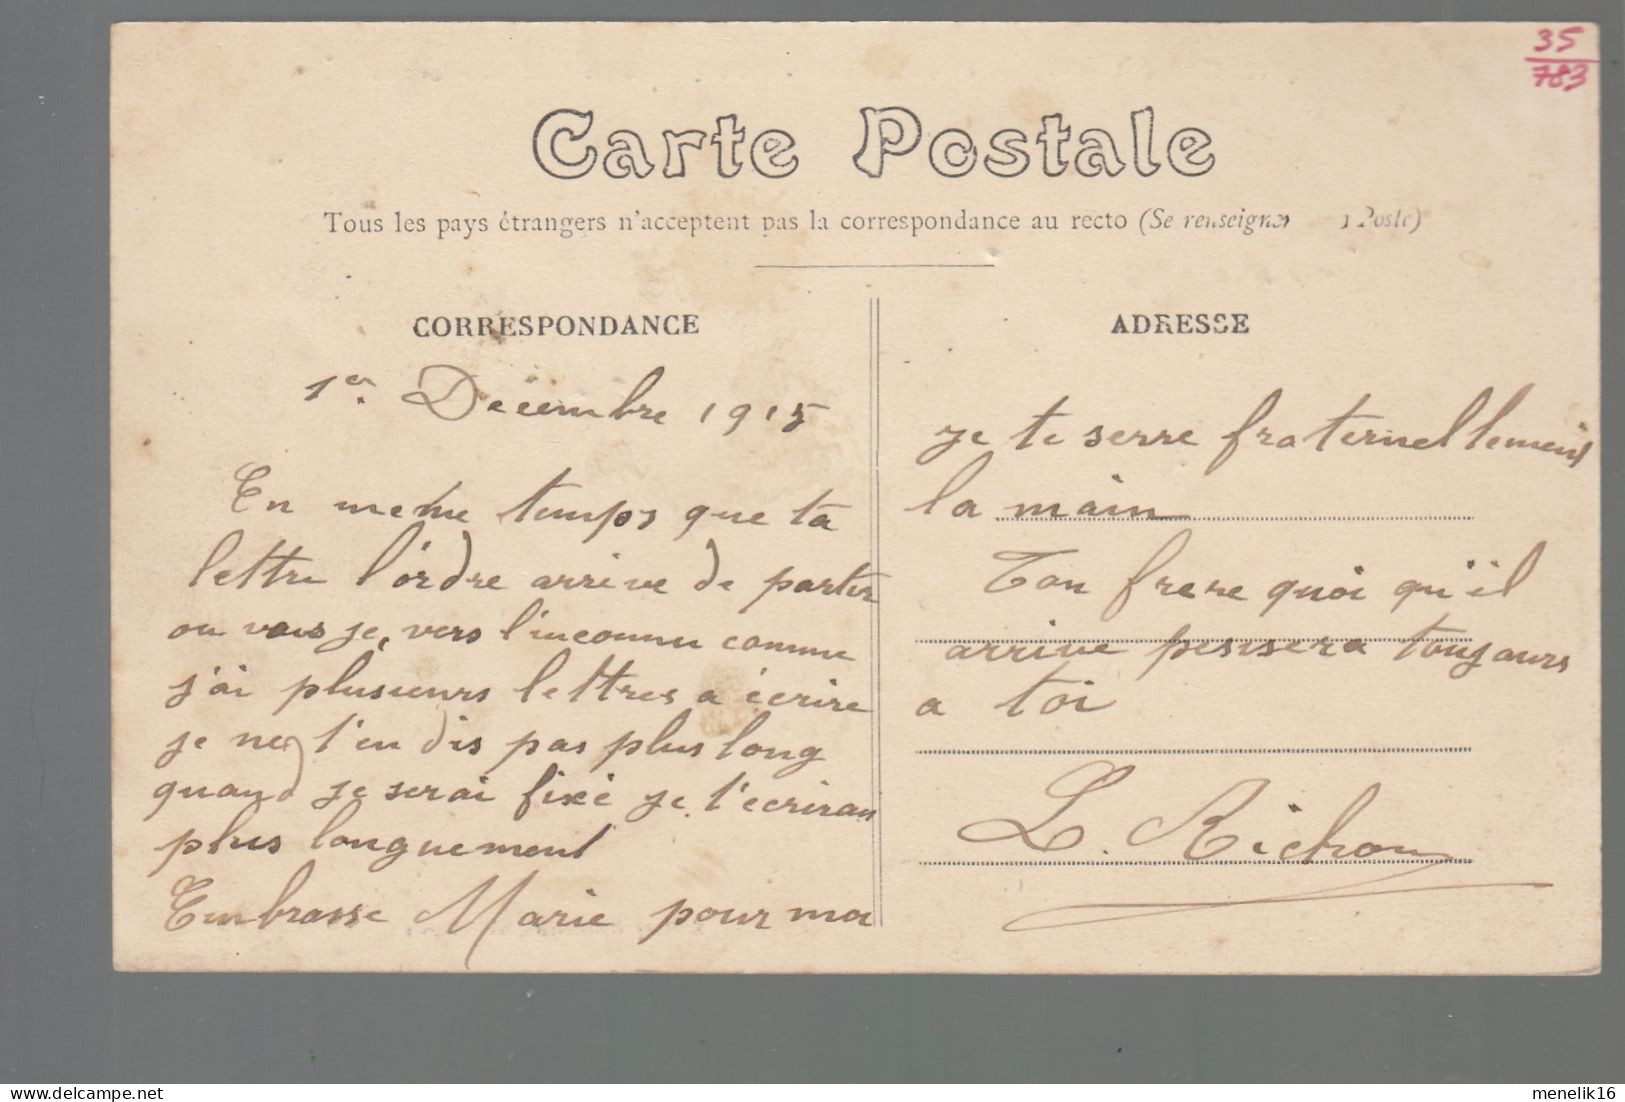 35
783
Carte Postale
Tous les pays étrangers n'acceptent pas la correspondance au recto (Se renseigner Poste)
CORRESPONDANCE
ADRESSE
1er. Decembre 1915
En meme temps que ta
lettre l'ordre arrive de partir
ou vais je, vers l'inconnu comme
j'ai plusieurs lettres a écrire
je ne t'en dis pas plus long
quand je serai fixé je t'ecrirai
plus longuement
Embrasse Marie pour moi
je te serre fraternellement
la main
Ton frere quoi qu'il
arrive pensera toujours
a toi
L. Richon
delcampe.net
menelik16